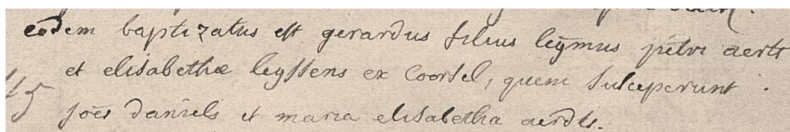 eodem baptizatus est gerardus filius legmus petri aerts
et elisabethæ leyssens ex Coorsel, quem susceperunt
115 joes daniels et maria elisabetha aerdts.